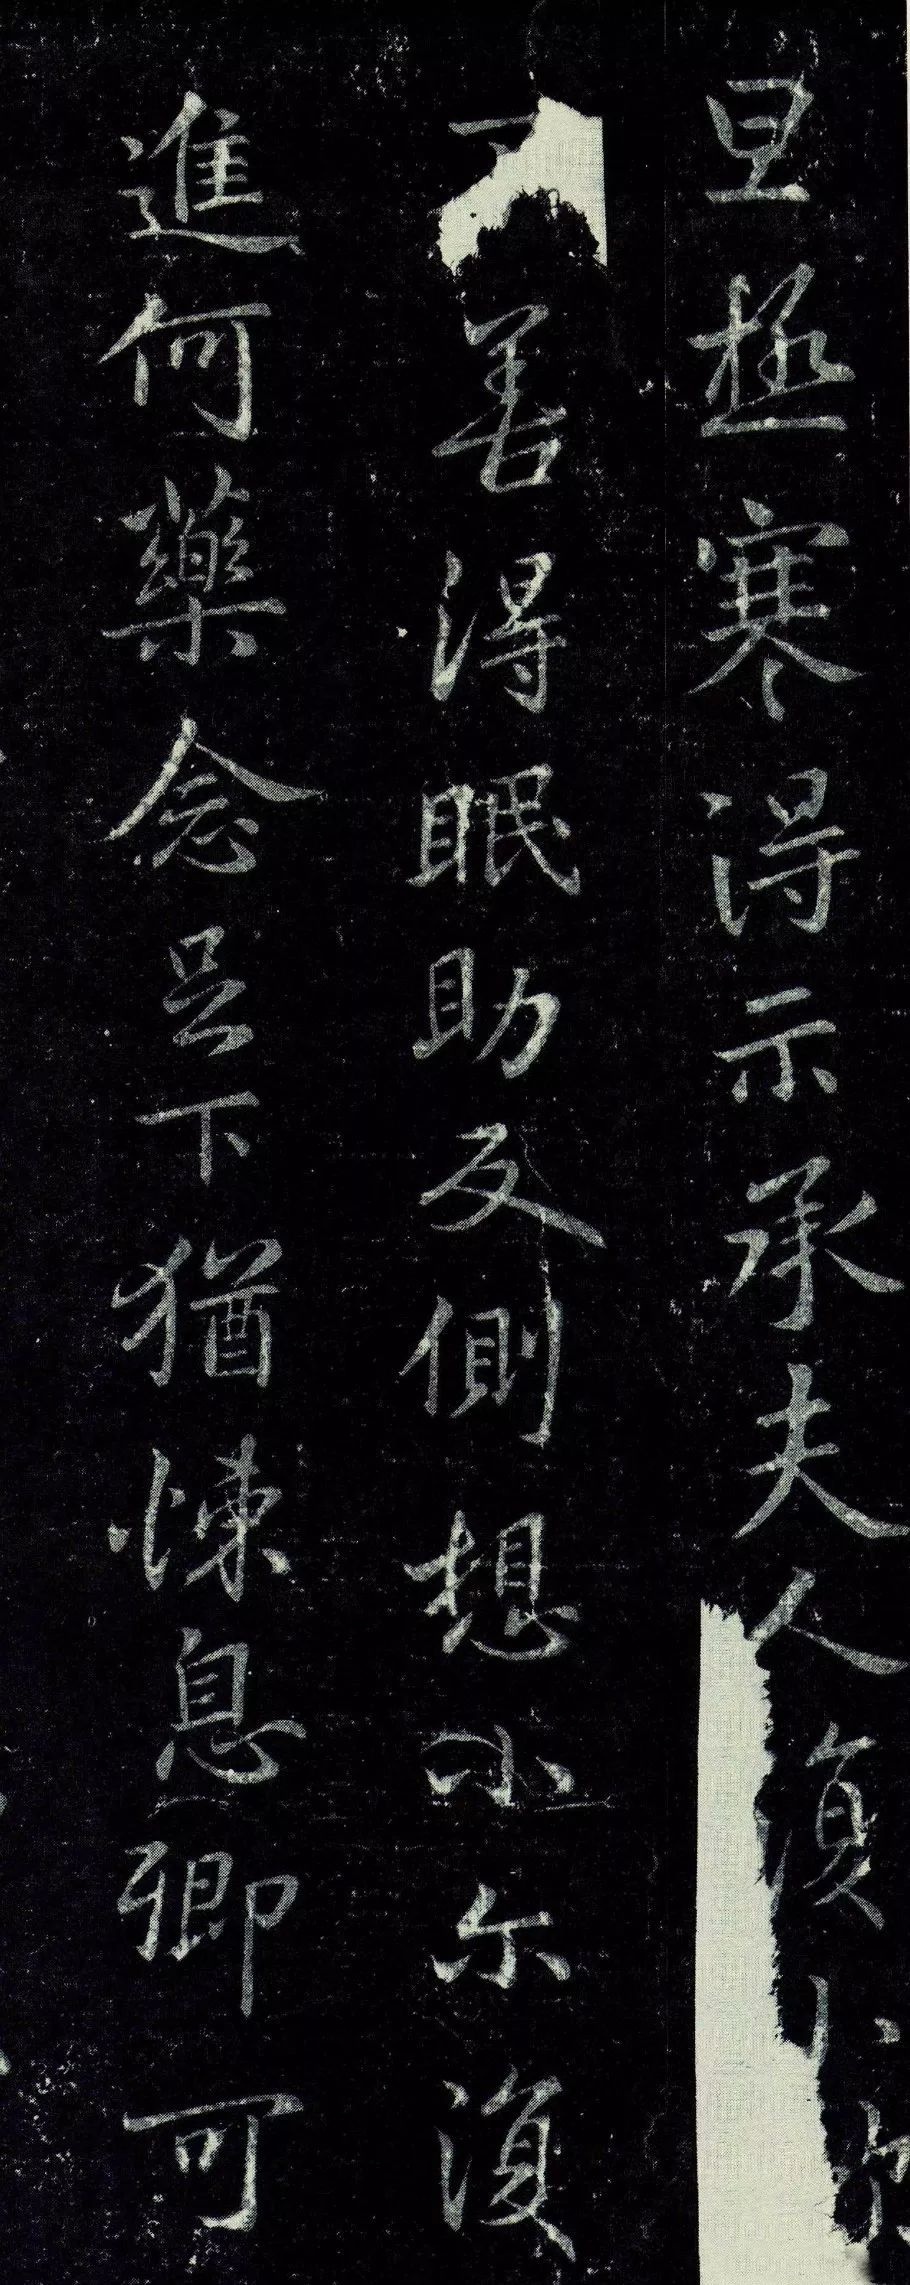 旦極寒得示承夫人復小
不善得眠助反側想小尓復
進何藥念足下猶悚息卿可